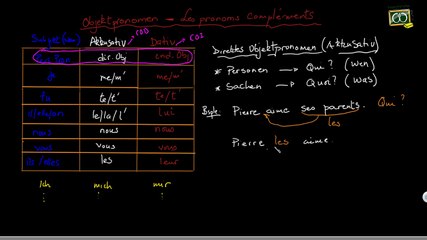 Objektpronomen – Les pronoms compléments
COD COI
Akkusativ Dativ
dir. Obj ind. Obj
je me/m' me/m'
tu te/t' te/t'
il/elle/on le/la/l' lui
nous nous nous
vous vous vous
ils/elles les leur
ich mich mir
⋮ ⋮ ⋮
Direktes Objektpronomen (Akkusativ)
* Personen → Qui? (Wen)
* Sachen → Quoi? (Was)
Bsple: Pierre aime ses parents. Qui?
les
Pierre les aime.